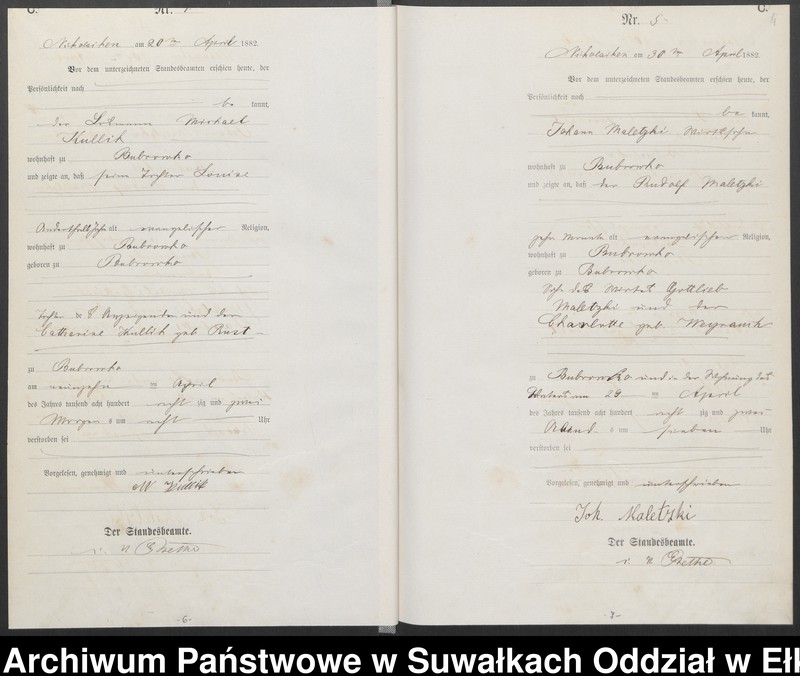 C.
Nr. 4
Nikolaiken am 20ten April 1882.
Vor dem unterzeichneten Standesbeamten erschien heute, der
Persönlichkeit nach
be kannt,
der Michael
Kullik
wohnhaft zu Bubrowko
und zeigte an, daß seine Tochter Louise
Anderthalb Jahr alt evangelischer Religion,
wohnhaft zu Bubrowko
geboren zu Bubrowko
Tochter des Anzeigenden und der
Catharine Kullik geb Rust
zu Bubrowko
am neunzehn ten April
des Jahres tausend acht hundert acht zig und zwei
Morgens um acht Uhr
verstorben sei
Vorgelesen, genehmigt und unterschrieben
M Kullik
Der Standesbeamte.
-6-
C.
Nr. 5
Nikolaiken am 30ten April 1882
Vor dem unterzeichneten Standesbeamten erschien heute, der
Persönlichkeit nach
be kannt,
Johann Maletzki Wirthssohn
wohnhaft zu Bubrowko
und zeigte an, daß der Rudolf Maletzki
zehn Monate alt evangelischer Religion,
wohnhaft zu Bubrowko
geboren zu Bubrowko
Sohn des Wirths Gottlieb
Maletzki und der
Charlotte geb
zu Bubrowko und in der Wohnung des
am 29 ten April
des Jahres tausend acht hundert acht zig und zwei
Abends um sieben Uhr
verstorben sei
Vorgelesen, genehmigt und unterschrieben
Joh. Maletzki
Der Standesbeamte.
-7-
Archiwum Państwowe w Suwałkach Oddział w Ełk